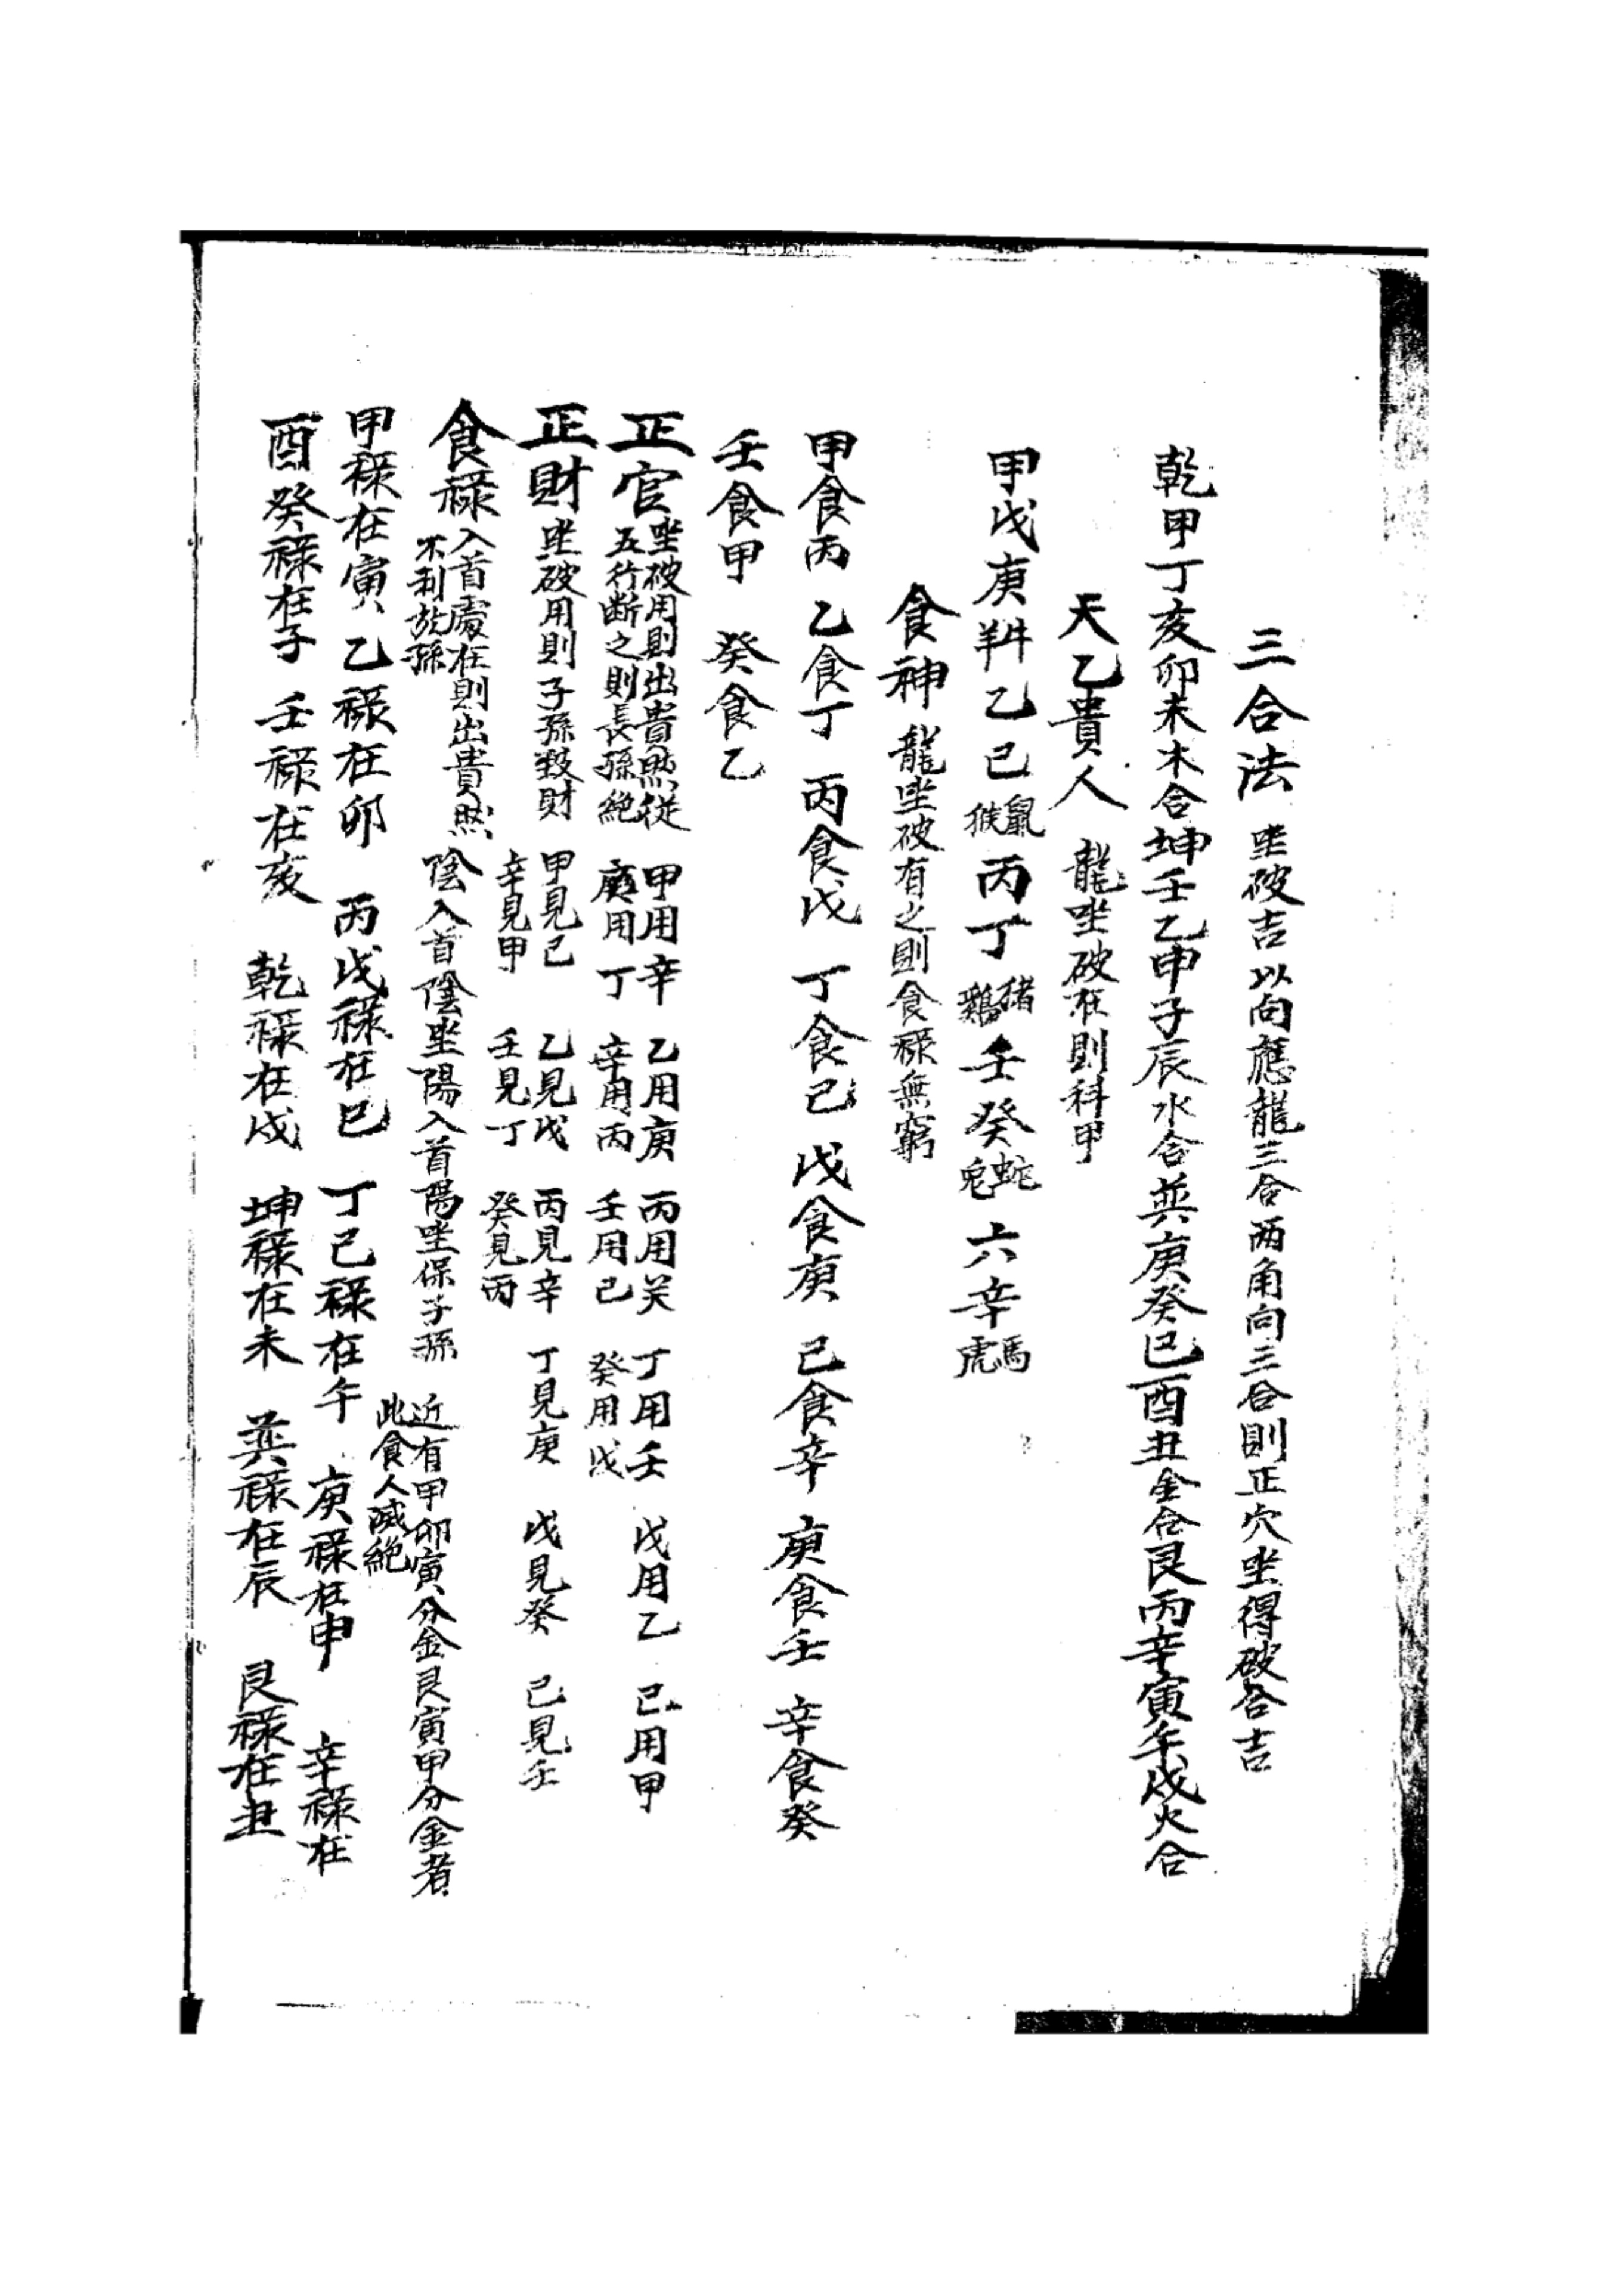 三合法 坐破吉以向應龍三合兩角向三合則正穴坐得破合吉
乾甲丁亥卯未木合坤壬乙申子辰水合巽庚癸巳酉丑金合艮丙辛寅午戌火合
天乙貴人 龍坐破在則科甲
甲戊庚 乙己鼠猴丙丁猪鷄壬癸蛇兎六辛馬虎
食神 龍坐破有之則食祿無窮
甲食丙 乙食丁 丙食戊 丁食己 戊食庚 己食辛 庚食壬 辛食癸
壬食甲 癸食乙
正官 坐破用則出貴然從
五行断之則長孫絶
甲用辛 乙用庚 丙用 丁用壬 戊用乙 己用甲
庚用丁 辛用丙 壬用己 癸用戊
正財 坐破用則子孫致財
甲見己 乙見戊 丙見辛 丁見庚 戊見癸 己見壬
辛見甲 壬見丁 癸見丙
食祿 入首處在則出貴然
不利於孫
陰入首陰坐陽入首陽坐保子孫
近有甲卯寅分金艮寅甲分金者
此食人滅絶
甲祿在寅 乙祿在卯 丙戊祿在巳 丁己祿在午 庚祿在申 辛祿在
酉 癸祿在子 壬祿在亥 乾祿在戌 坤祿在未 巽祿在辰 艮祿在丑